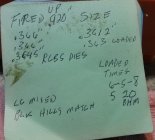 UP
FIRED 970 SIZE
.366" .361/2
.366" .363 LOADED
.3645 RCBS DIES
LOADED
TIMES
6-5-8
5 20
OHM
LG MIXED
BLK HILLS MATCH